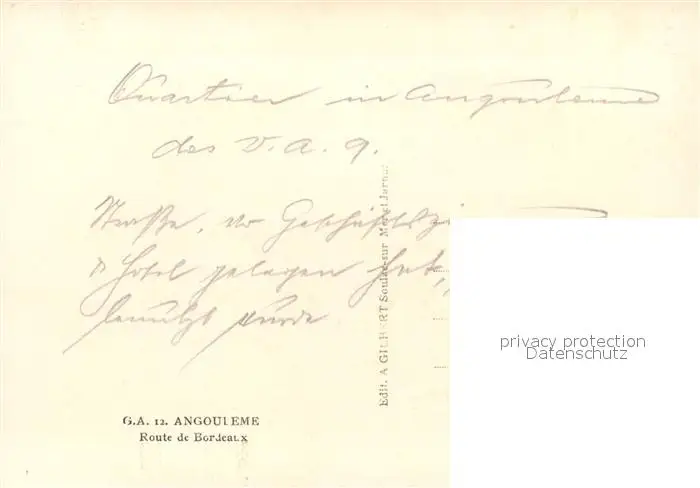 Quartier in Angouleme
des V. A. 9.
Straße, wo Geschäftszi
Hotel gelegen hat,
benützt wurde
Edit. A GILBERT Soulac-sur Mer
privacy protection
Datenschutz
G.A. 12. ANGOULEME
Route de Bordeaux